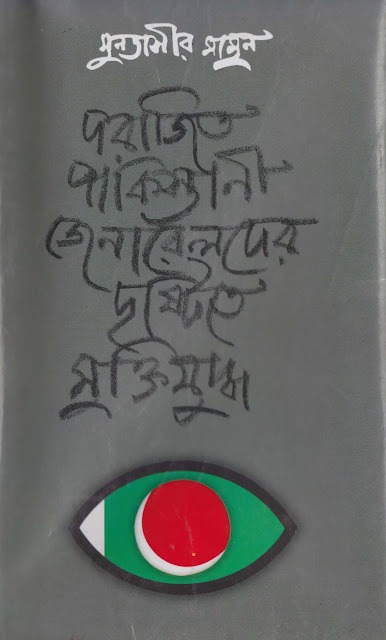 মুনতাসীর মামুন
পরাজিত
পাকিস্তানী
জেনারেলদের
দৃষ্টিতে
মুক্তিযুদ্ধ